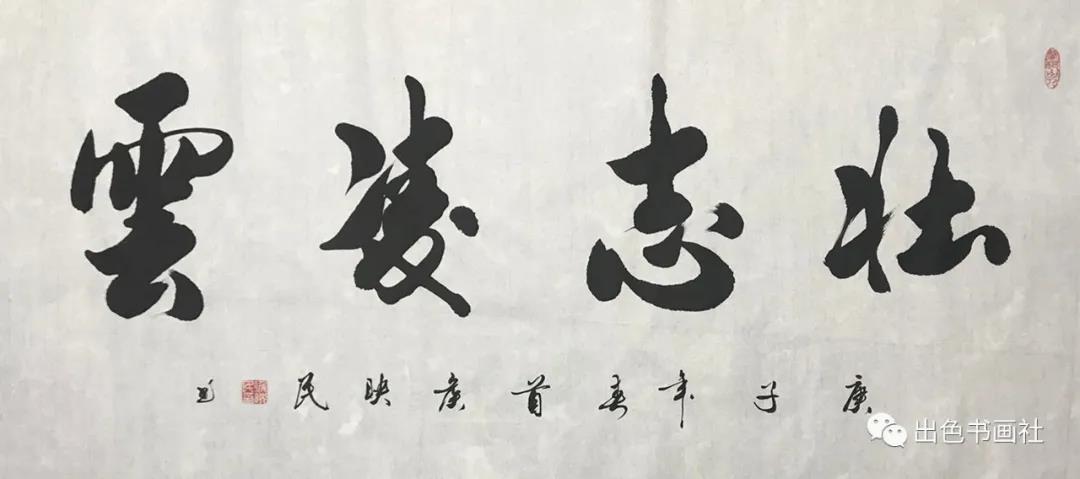 壮志凌雲
庚子年春首映民
出色书画社